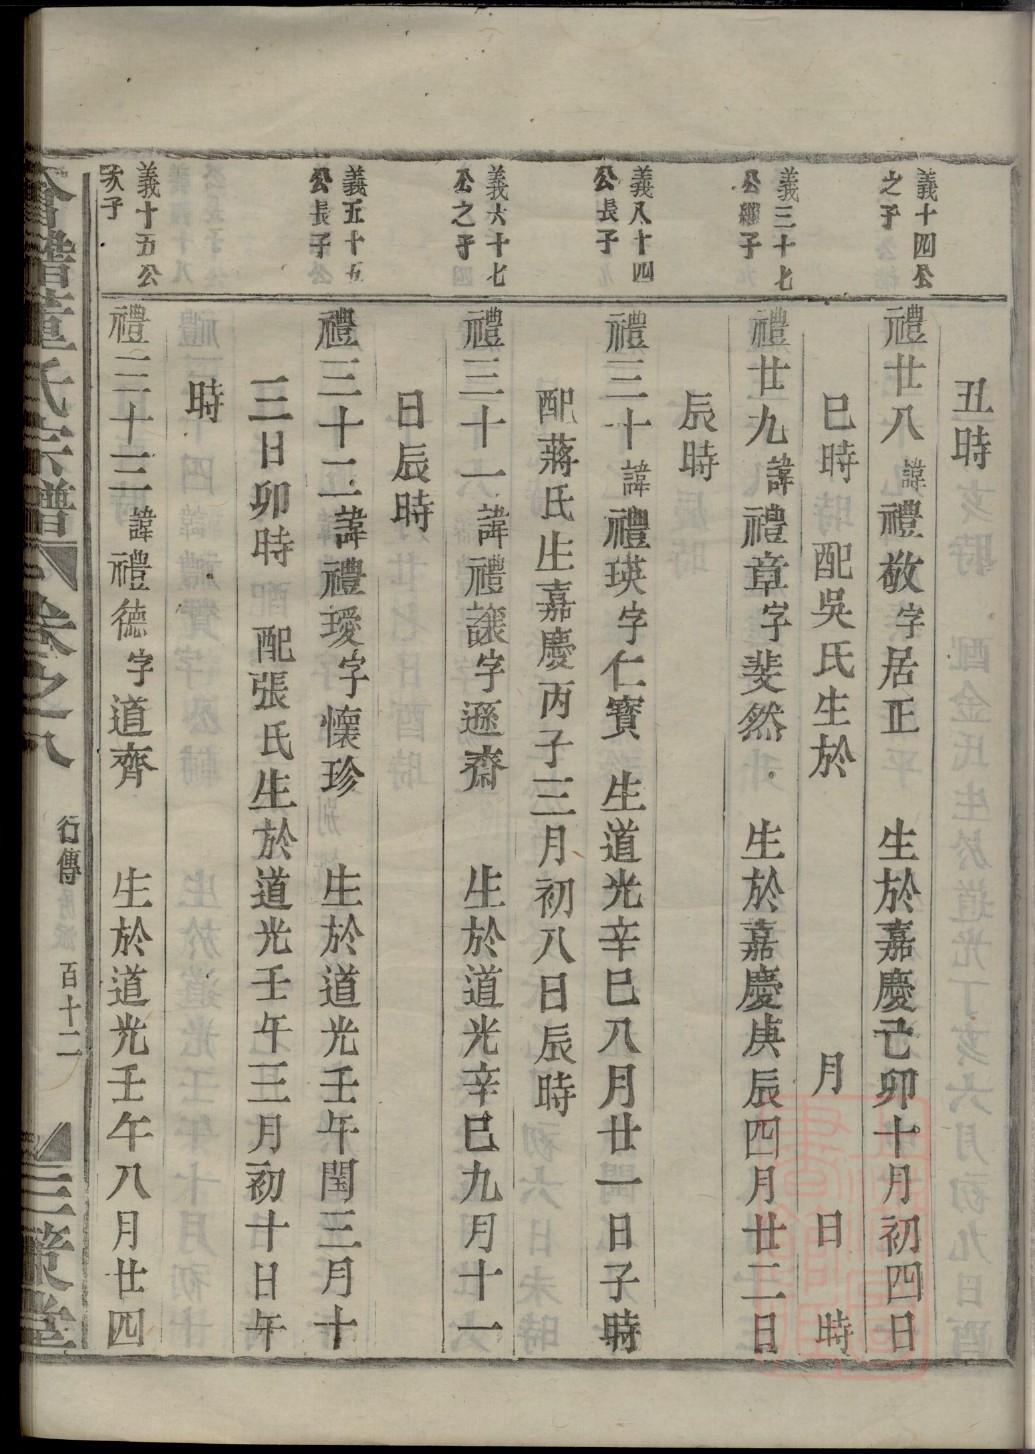 丑時
義十四公
之子
禮廿八諱禮敬字居正 生於嘉慶己卯十月初四日
巳時 配吳氏生於 月 日 時
義三十七
公繼子
禮廿九諱禮章字斐然 生於嘉慶庚辰四月廿二日
辰時
義八十四
公長子
禮三十諱禮瑛字仁寶 生道光辛巳八月廿一日子時
配蔣氏生嘉慶丙子三月初八日辰時
義六十七
公之子
禮三十一諱禮讓字遜齋 生於道光辛巳九月十一
日辰時
義五十五
公長子
禮三十二諱禮璦字懷珍 生於道光壬午閏三月十
三日卯時 配張氏生於道光壬午三月初十日午
時
義十五公
次子
禮三十三諱禮德字道齊 生於道光壬午八月廿四
合譜董氏宗譜 卷之八 行傳 百十二 三策堂